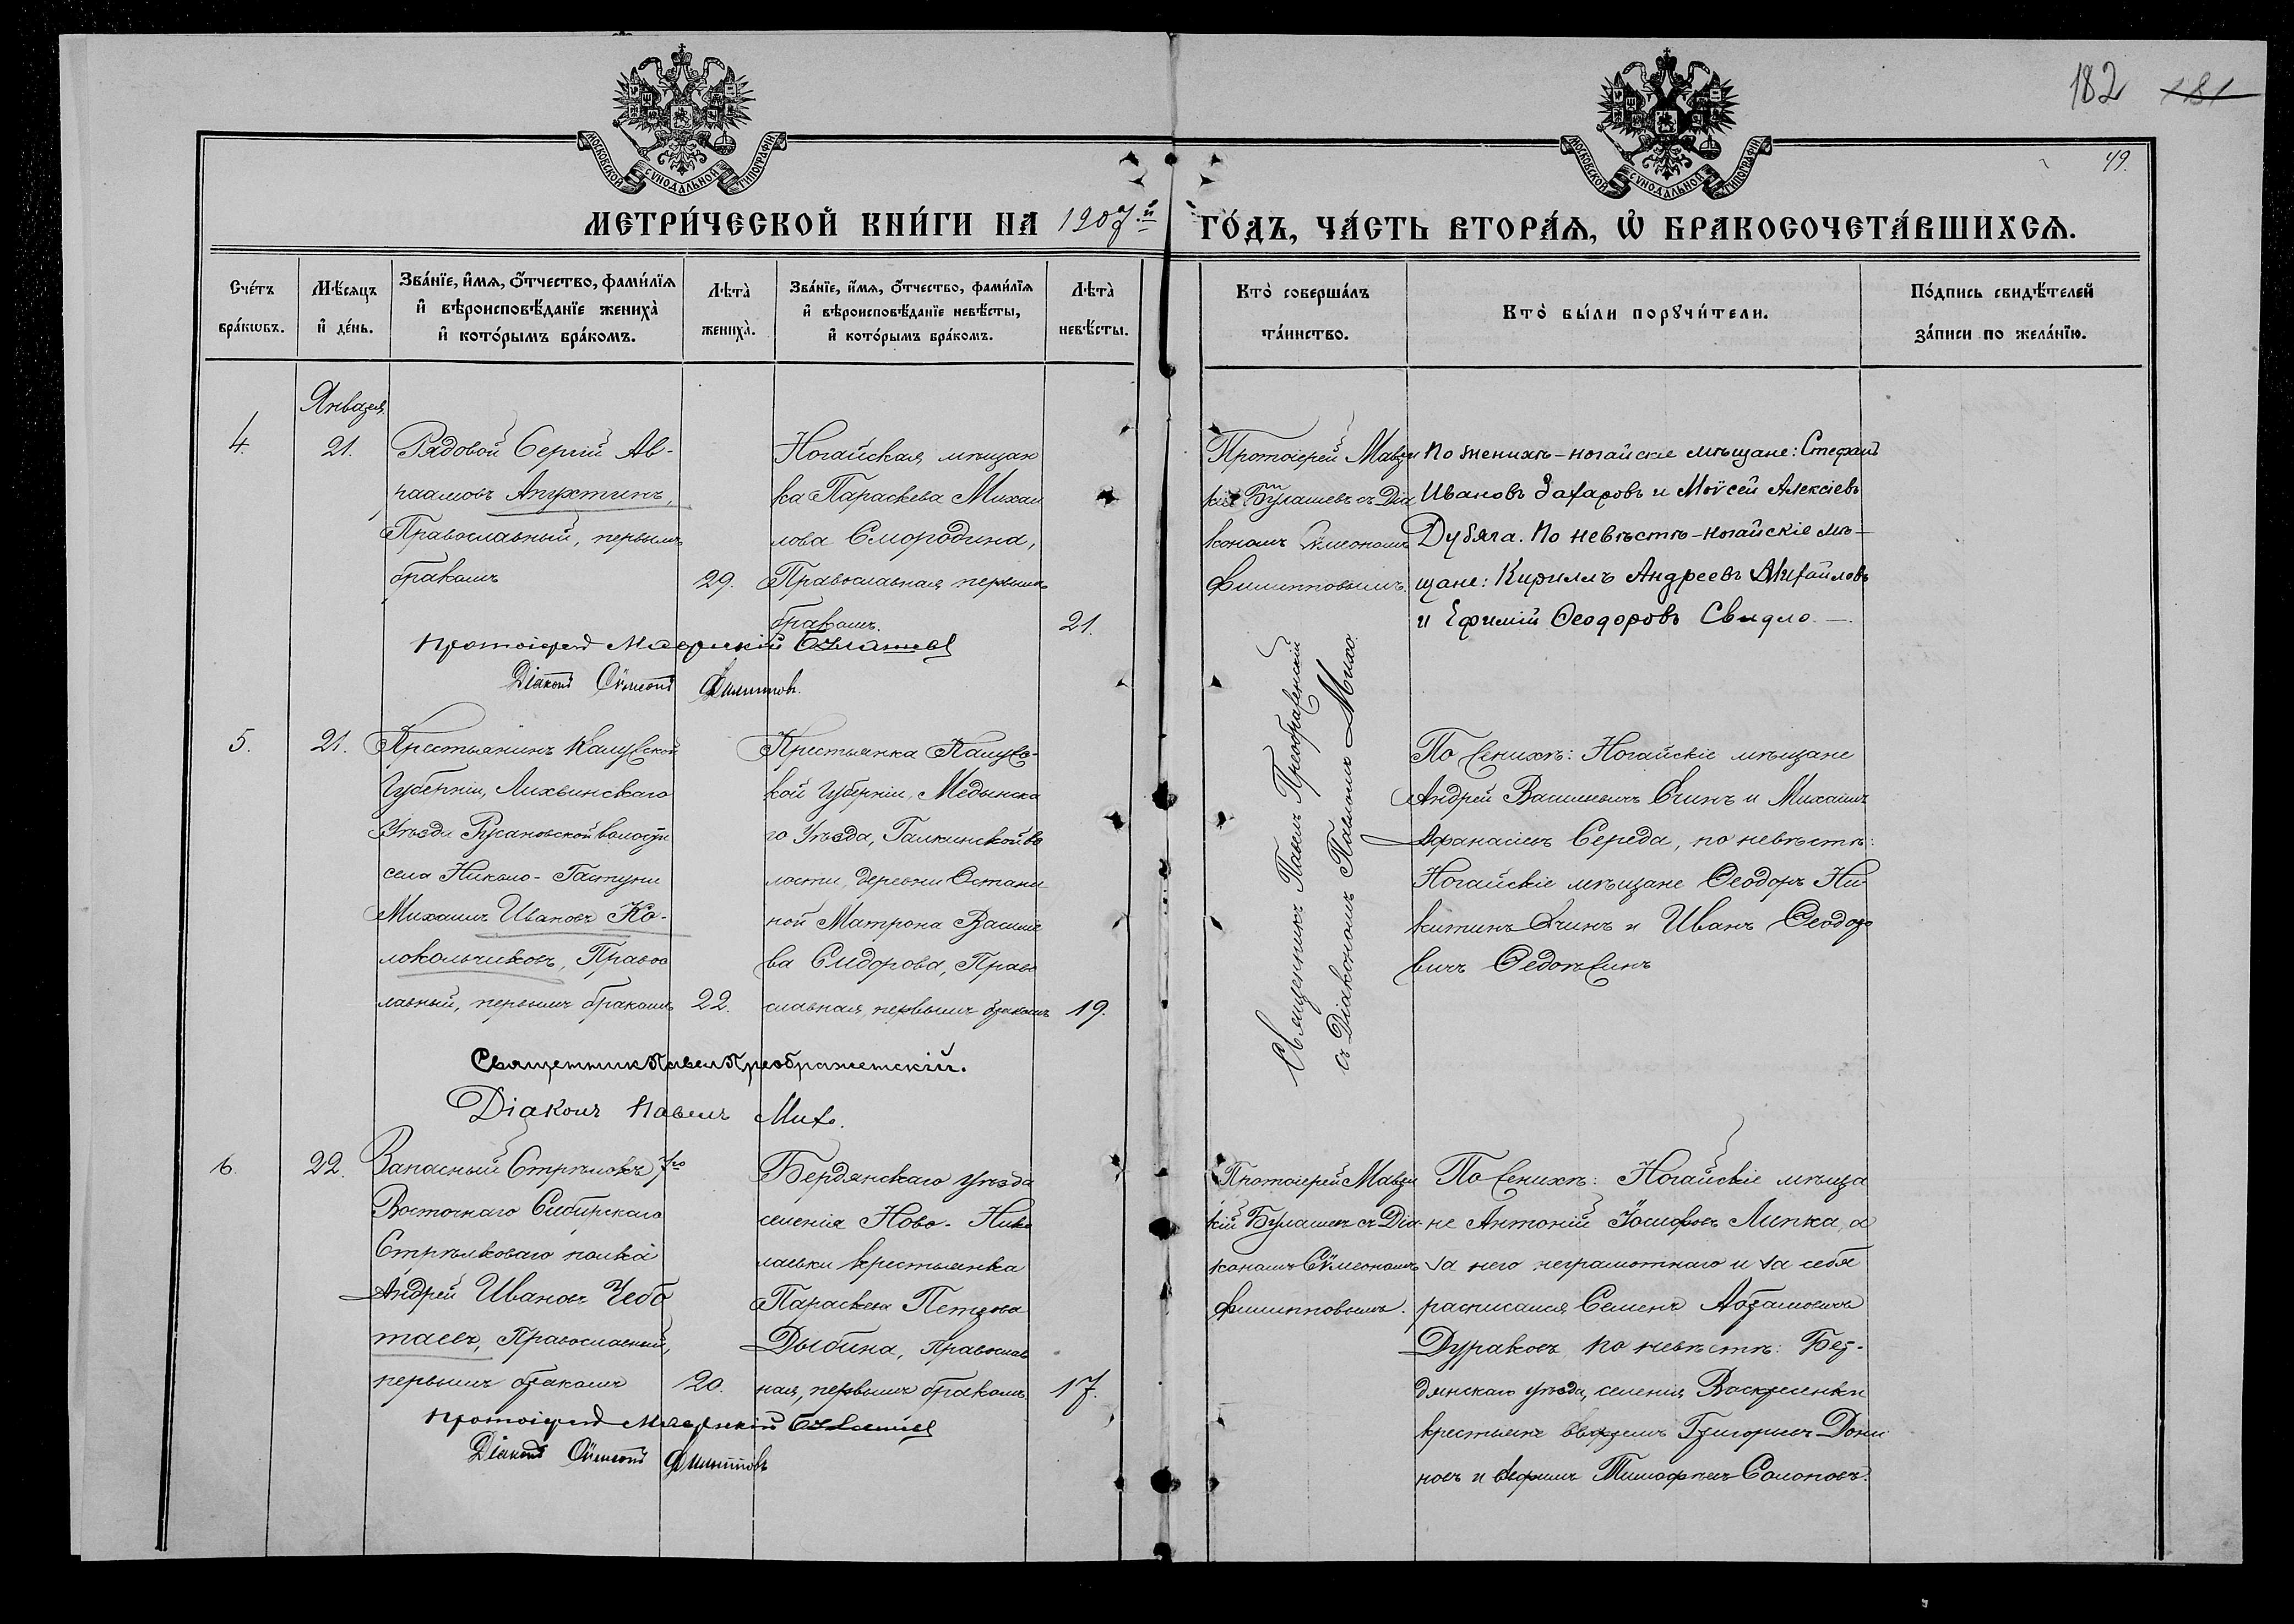 182 181
49.
МОСКОВСКОЙ СѴНОДАЛЬНОЙ ТИПОГРАФІИ
МОСКОВСКОЙ СѴНОДАЛЬНОЙ ТИПОГРАФІИ
МЕТРИ́ЧЕСКОЙ КНИ́ГИ НА 1907.й ГО́ДЪ, ЧА́СТЬ ВТОРА́Ѧ, Ѡ҆ БРАКОСОЧЕТА́ВШИХСѦ.
Сче́тъ бра́кѡвъ.
Мѣ́сяцъ и҆ де́нь.
Зва́нїе, и҆́мѧ, ѻ҆́тчество, фами́лїѧ
и҆ вѣроисповѣ́данїе жениха̀
и҆ кото́рымъ бра́комъ.
Лѣта̀ жениха̀.
Зва́нїе, и҆́мѧ, ѻ҆́тчество, фами́лїѧ
и҆ вѣроисповѣ́данїе невѣ́сты,
и҆ кото́рымъ бра́комъ.
Лѣта̀ невѣ́сты.
Кто̀ соверша́лъ
та́инство.
Кто̀ бы́ли порꙋчи́тели.
По́дпись свидѣ́телей
за́писи по жела́нїю.
4.
Января
21.
Рядовой Сергій Ав-
раамовъ Апухтинъ,
Православный, первымъ
бракомъ
29.
Ногайская мѣщан
ка Параскева Михаи
лова Смородина,
Православная первымъ
бракомъ.
21.
Протоіерей Маври
кій Булашевъ съ Діа
кономъ Сѵмеономъ
Филипповымъ.
По женихѣ – ногайскіе мѣщане: Стефанъ
Ивановъ Захаровъ и Моѵсей Алексіевъ
Дубяга. По невѣстѣ – ногайскіе мѣ-
щане: Кириллъ Андреевъ Михайловъ
и Ефимій Ѳеодоровъ Свидло. —.
Протоіерей Маврикій Булашевъ
Діаконъ Сѵмеонъ Филипповъ.
5.
21.
Крестьянинъ Калужской
Губерніи, Лихвинскаго
Уѣзда Русановской волости
села Николо-Гастуни
Михаилъ Ивановъ Ко-
локольчиковъ, Правос
лавный, первымъ бракомъ
22.
Крестьянка Калужс-
кой Губерніи, Медынска
го Уѣзда, Галкинской во
лости, деревни Остани
ной Матрона Василіе
ва Сидорова, Право
славная, первымъ бракомъ
19.
Священникъ Павелъ Преображенскій
съ Діакономъ Павломъ Михо.
По женихѣ: Ногайскіе мѣщане
Андрей Васильевичъ и Михаилъ
Афанасіевъ Середа, по невѣстѣ:
Ногайскіе мѣщане Ѳеодоръ Ни
китинъ и Иванъ Ѳеодоро
вичъ
Священникъ Павелъ Преображенскій.
Діаконъ Павелъ Михо.
6.
22.
Запасный Стрѣлокъ 7го
Восточнаго Сибирскаго
Стрѣлковаго полка
Андрей Ивановъ Чебо
таевъ, Православный,
первымъ бракомъ
20.
Бердянскаго уѣзда
селенія Ново-Нико
лаевки крестьянка
Параскева Петрова
Дыбина, Православ
ная, первымъ бракомъ
17.
Протоіерей Маври
кій Булашевъ съ Діа-
кономъ Сѵмеономъ
Филипповымъ.
По женихѣ: Ногайскіе мѣща
не Антоній Іосифовъ Липка, а
за него неграмотнаго и за себя
расписался Семенъ Абрамовичъ
Дураковъ. По невѣстѣ: Бер-
дянскаго уѣзда, селенія Воскресенки
крестьяне Григорьевъ Дони
новъ и Тимофѣевъ Солоповъ.
Протоіерей Маврикій Булашевъ
Діаконъ Сѵмеонъ Филипповъ